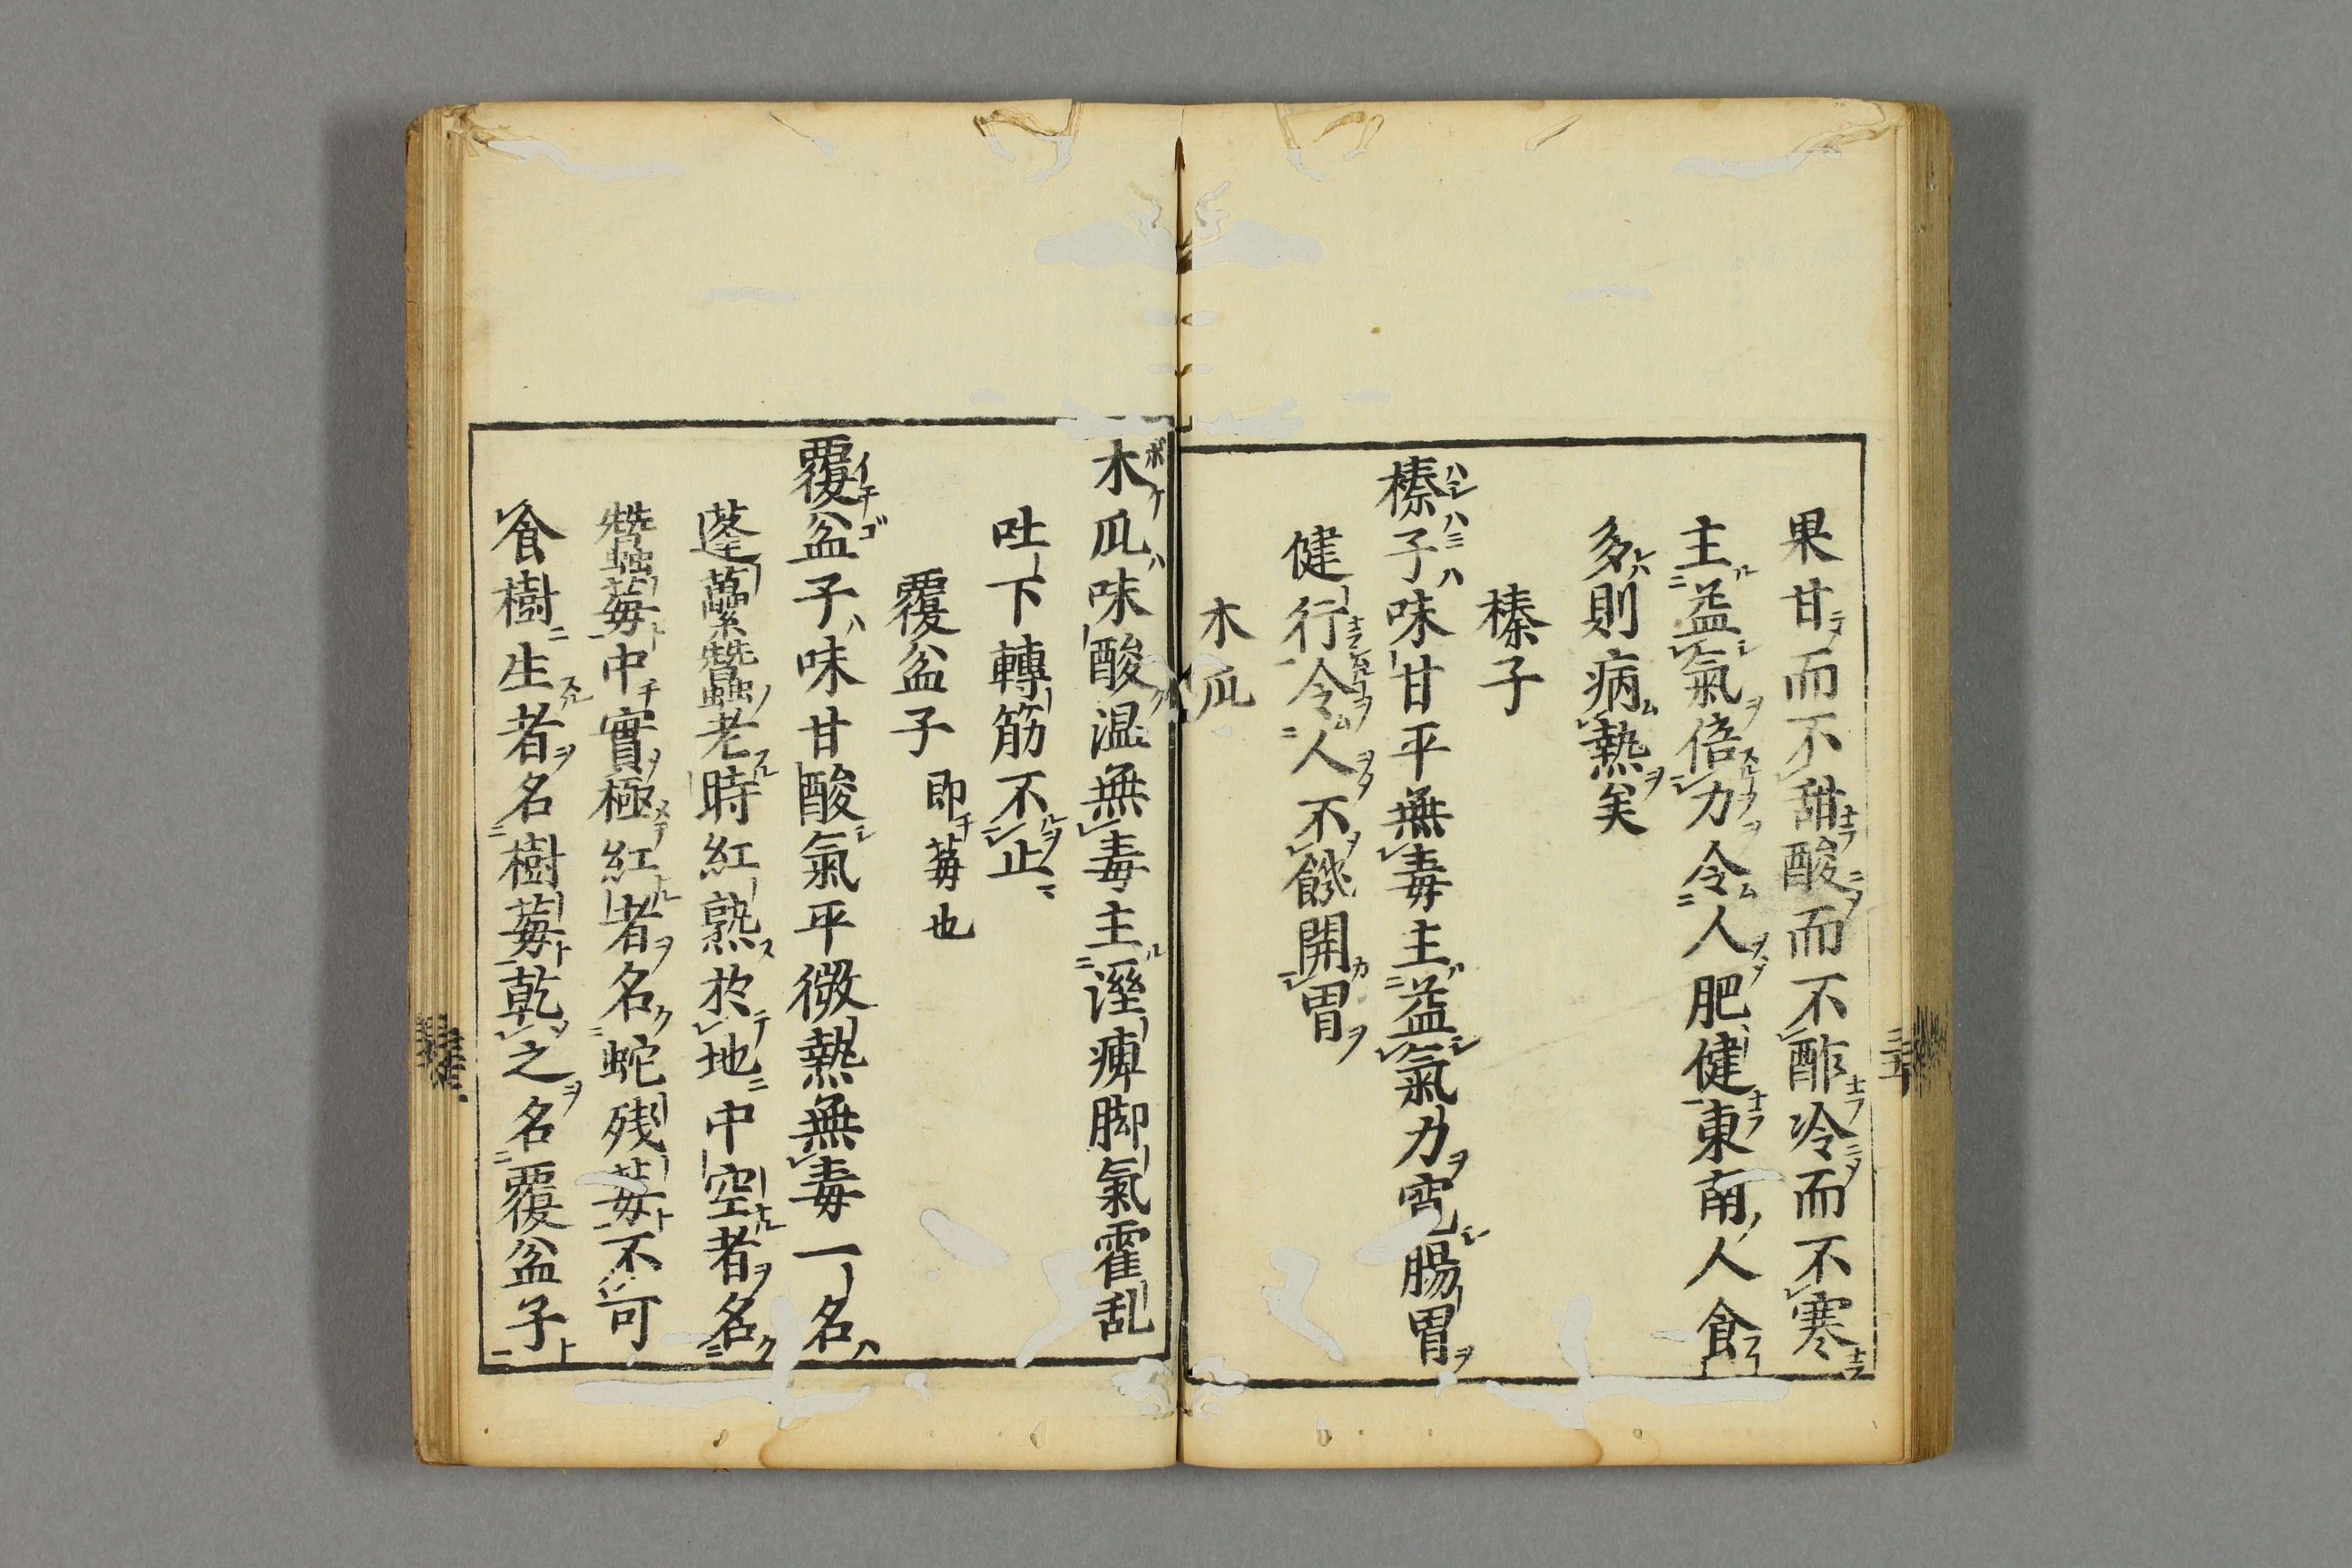 果甘而不甜酸而不酢冷而不寒
主益氣倍力令人肥健東南人食
多則病熱矣
榛子
榛子味甘平無毒主益氣力寬腸胃
健行令人不飢開胃
木瓜
木瓜味酸温無毒主溼痺脚氣霍乱
吐下轉筋不止
覆盆子 即苺也
覆盆子味甘酸氣平微熱無毒一名
蓬蔂蠶老時紅熟於地中空者名
蠶苺中實極紅者名蛇残苺不可
食樹生者名樹苺乾之名覆盆子